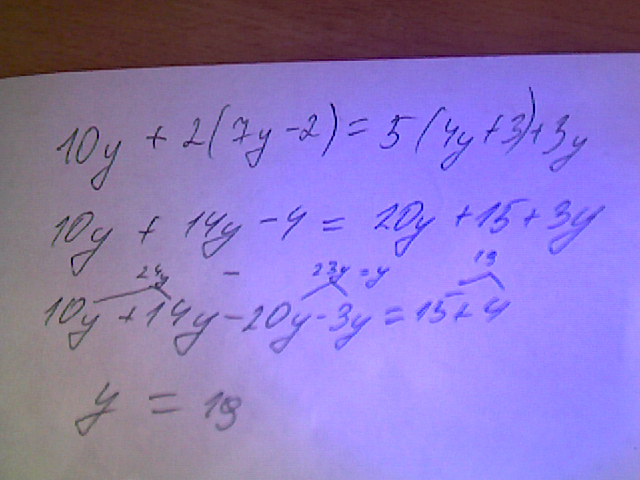 10y + 2(7y-2) = 5(4y+3)+3y
10y + 14y - 4 = 20y + 15 + 3y
24y - 23y = y 19
10y + 14y - 20y - 3y = 15 + 4
y = 19